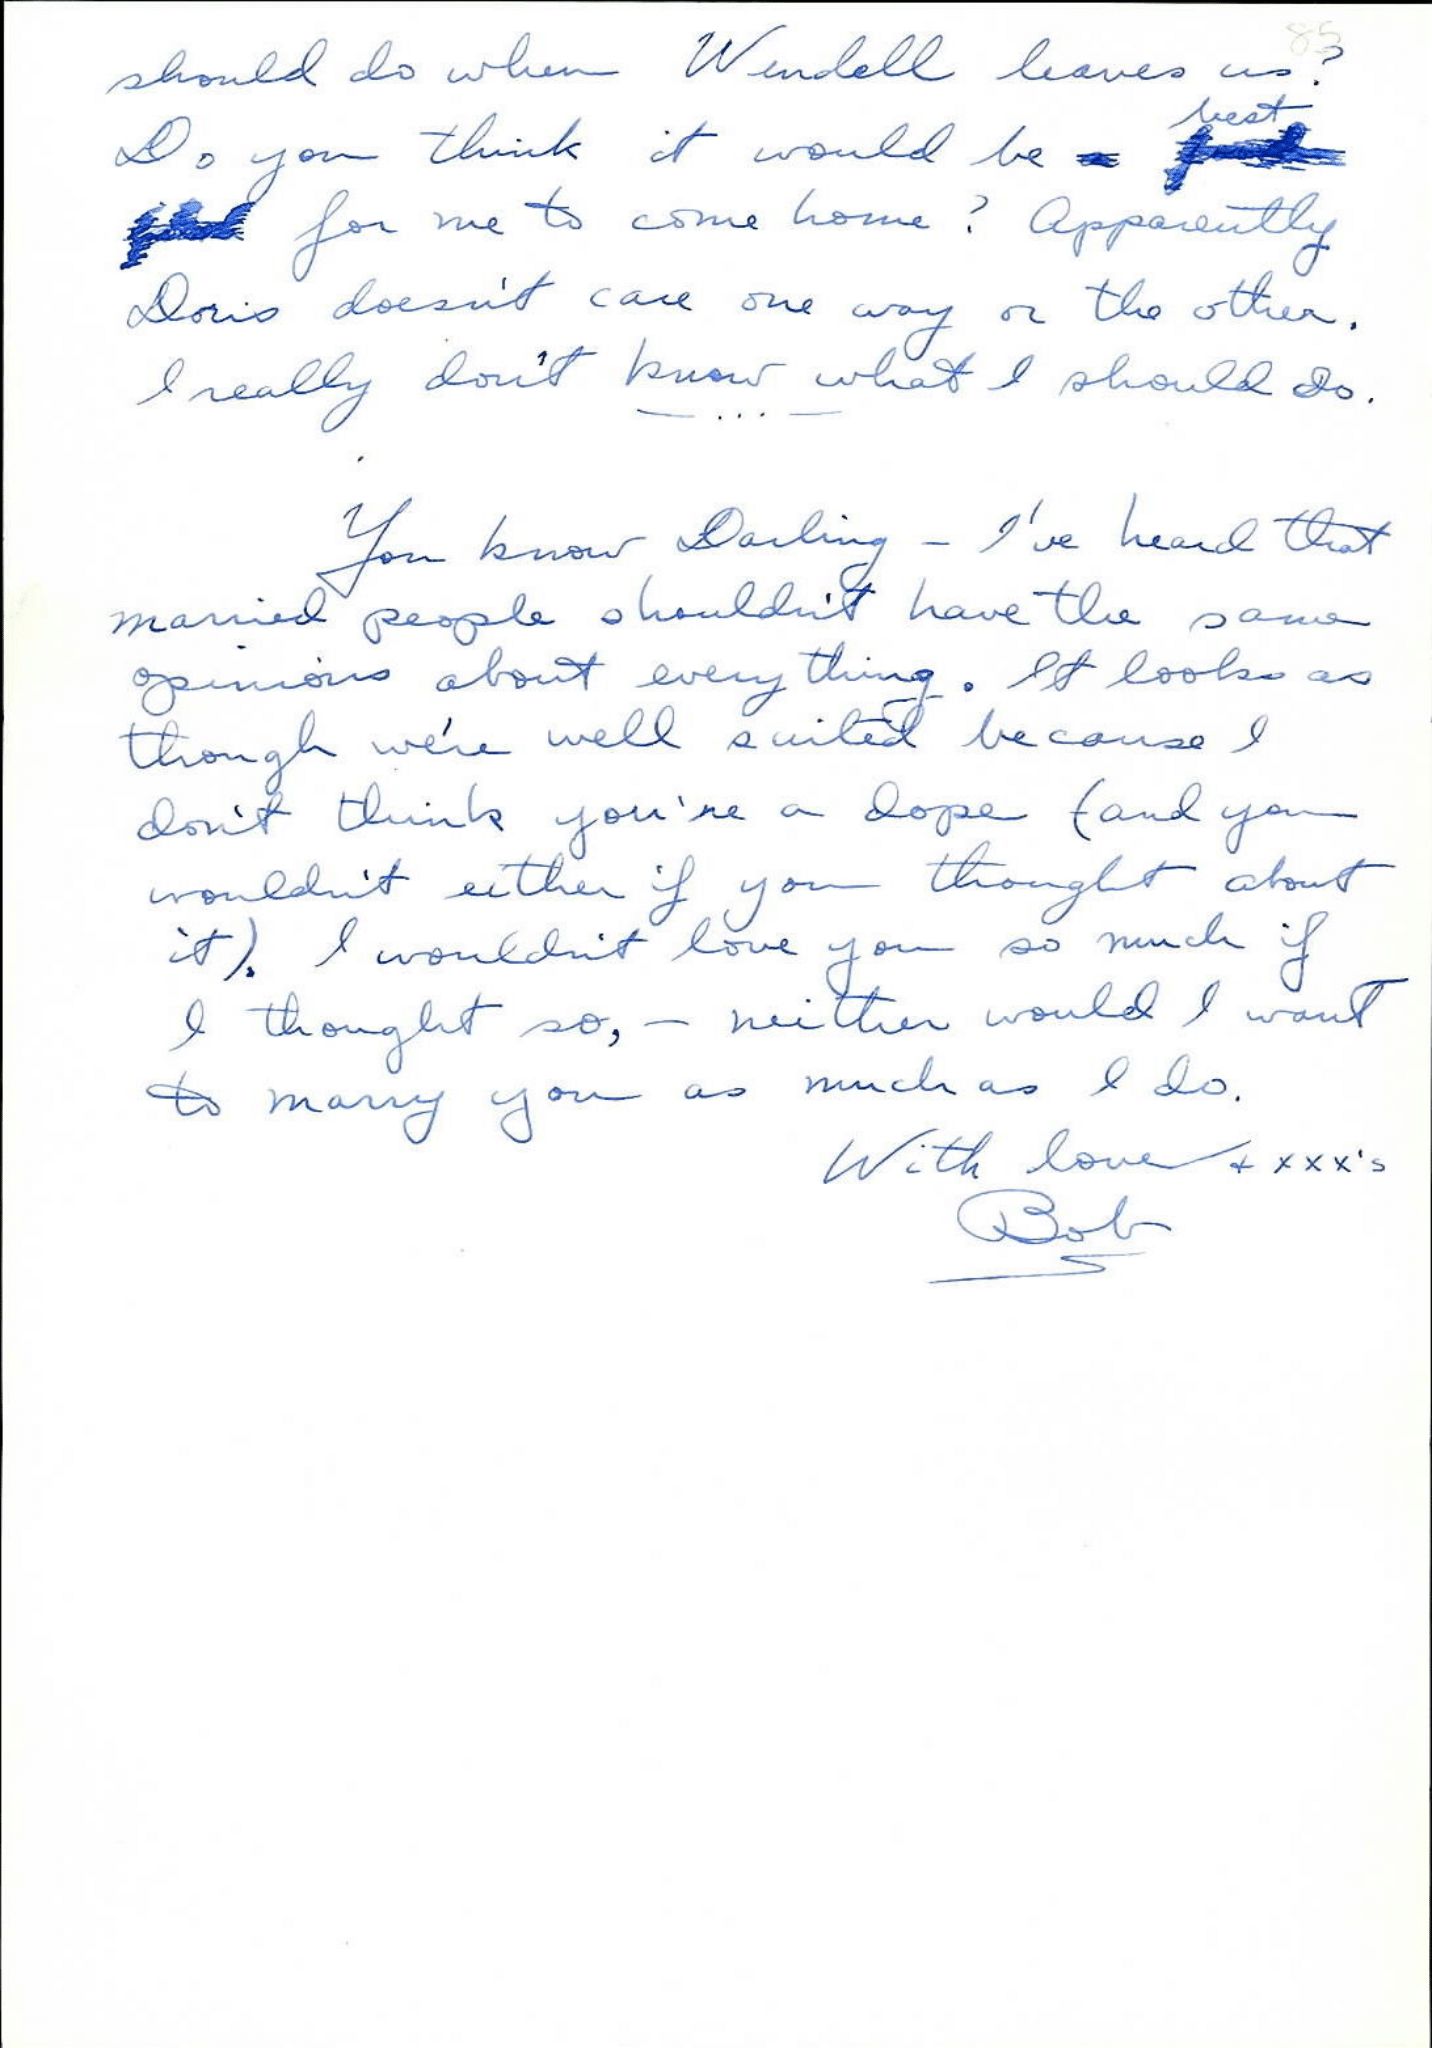 85
should do when Wendell leaves us?
Do you think it would be best
for me to come home? Apparently
Doris doesn't care one way or the other.
I really don't know what I should do.
— ... —
You know Darling – I've heard that
married people shouldn't have the same
opinions about everything. It looks as
though we're well suited because I
don't think you're a dope (and you
wouldn't either if you thought about
it). I wouldn't love you so much if
I thought so, – neither would I want
to marry you as much as I do.
With love + xxx's
Bob